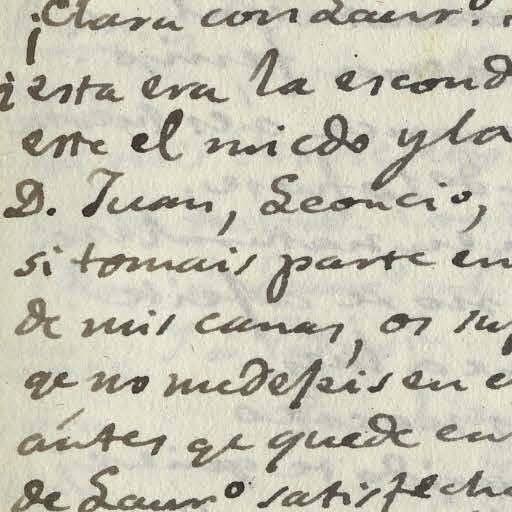 ¡Clara con Laur.º
¡esta era la escond
este el miedo y la
D. Juan, Leoncio,
si tomais parte en
de mis canas, os su
qe no me dejeis en e
ántes qe quede en
de Laurº satisfech